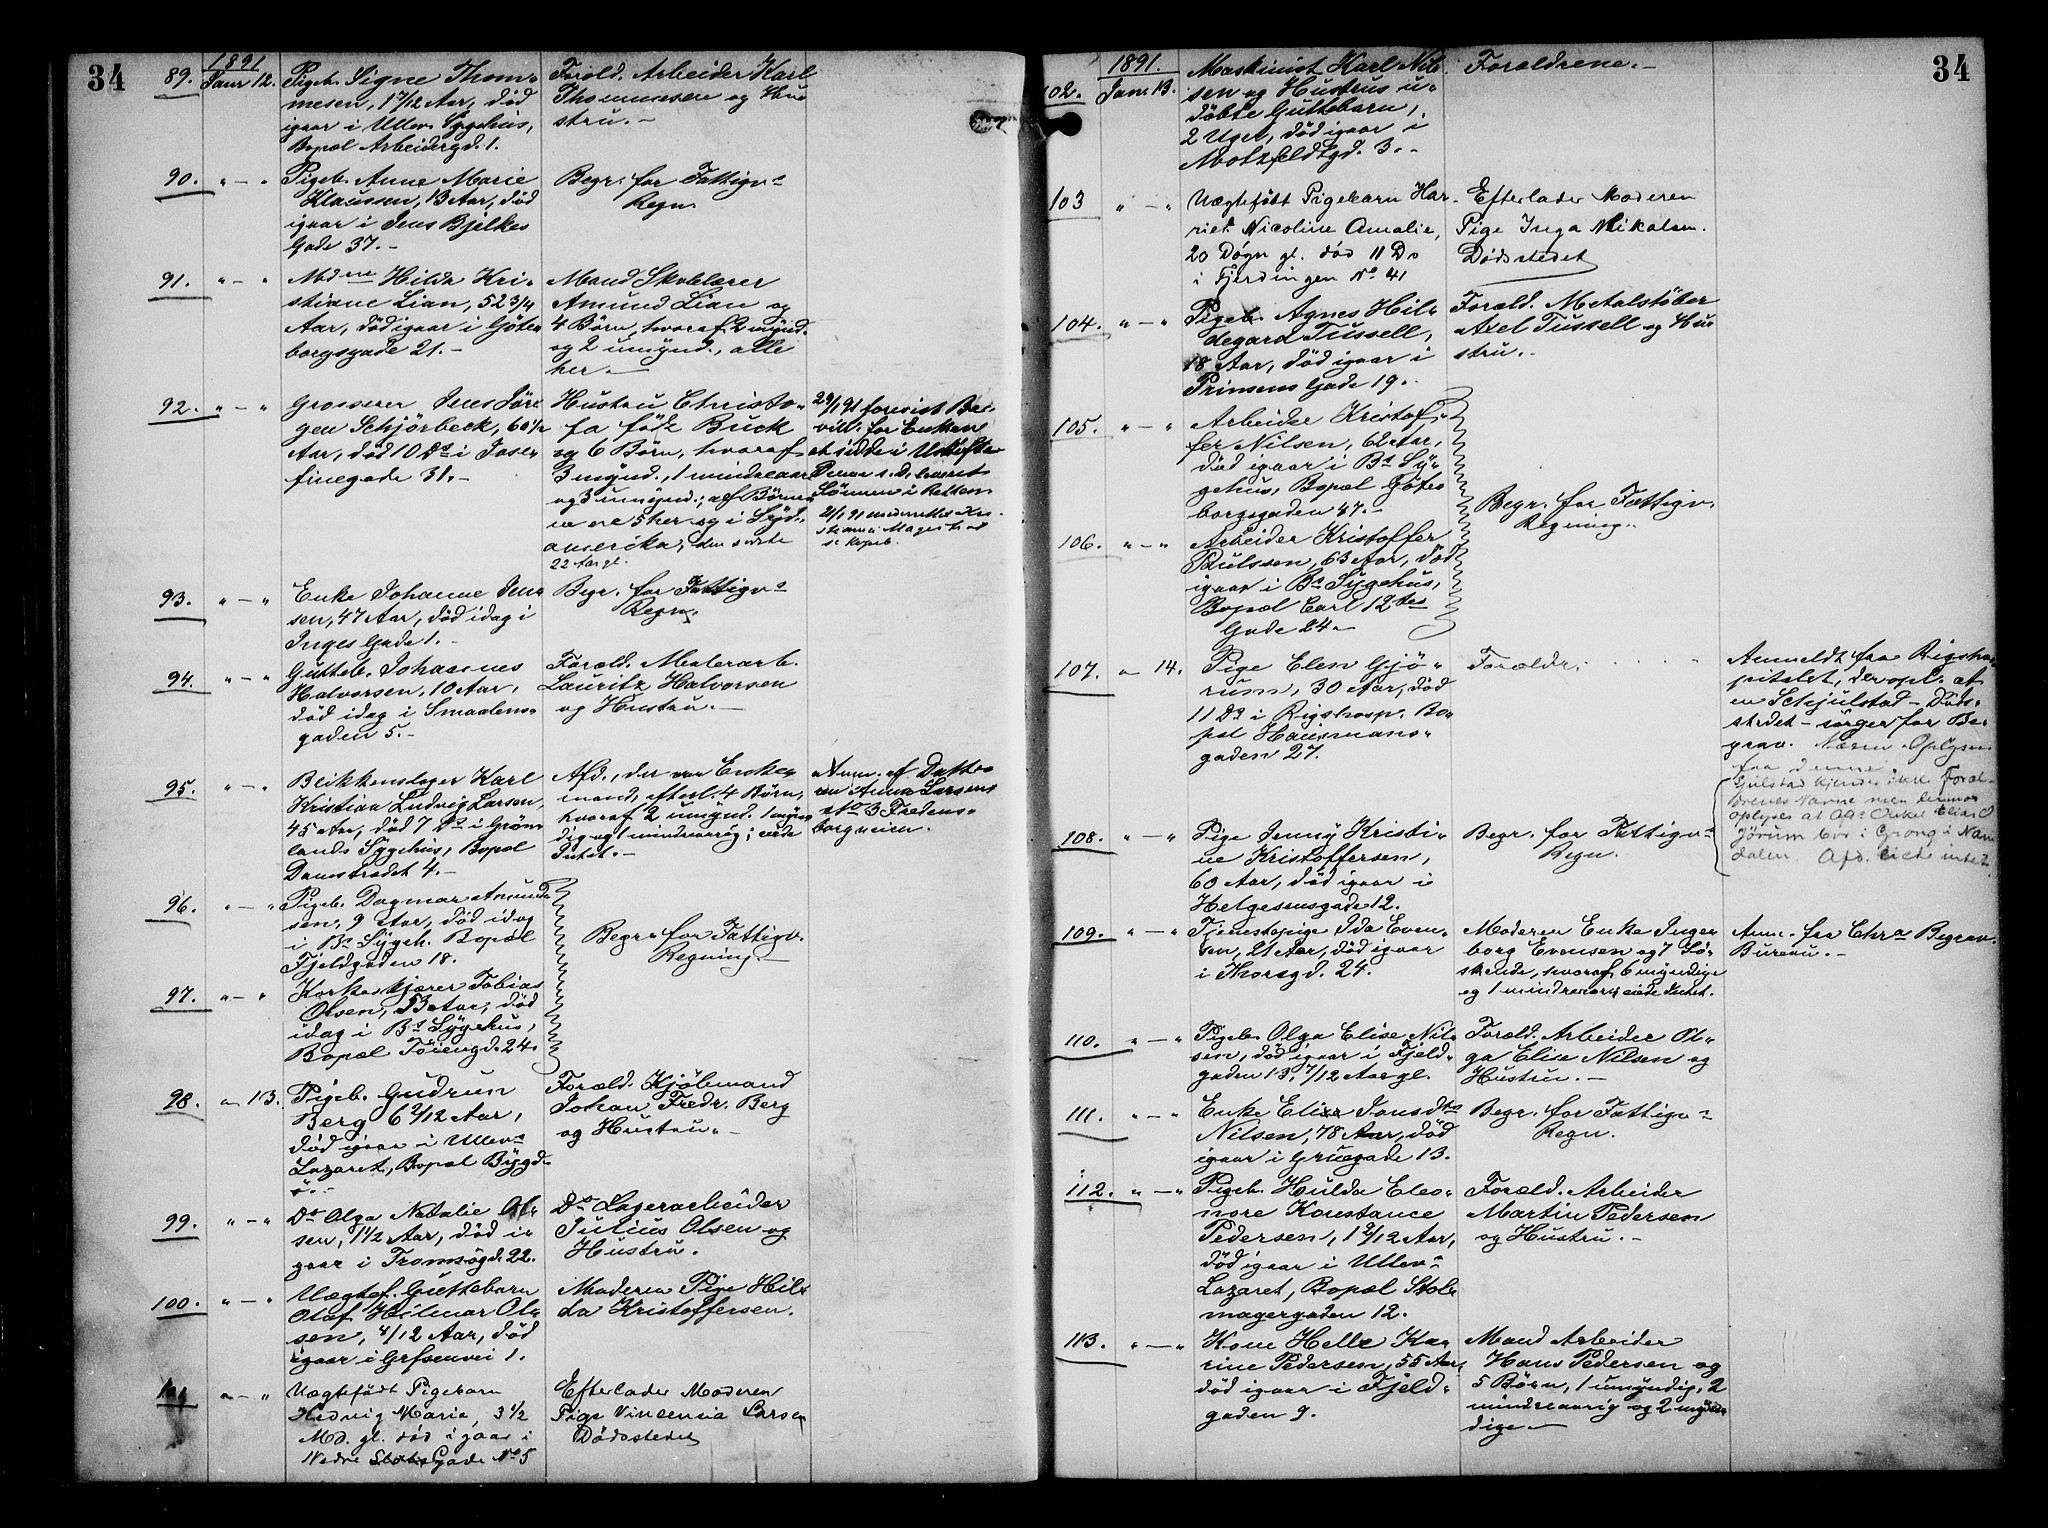 34
1891
89. Janr 12. Pigeb. Signe Thom-
mesen, 1 7/12 Aar, död
igaar i Ullev. Sygehus,
Bopæl Arbeidergd. 1.
Foræld. Arbeider Karl
Thommesen og Hu-
stru.-
90. " - " Pigeb. Anne Marie
Klaussen, 13 Aar, död
igaar i Jens Bjelkes
Gade 37.-
Begr. for Fattigv.s
Regn.
91. " - " Mdme Hilda Kri-
stiane Lian, 52 3/4
Aar, död igaar i Göte-
borgsgade 21.-
Mand Skolelærer
Amund Lian og
4 Börn, hvoraf 2 mynd.
og 2 umynd., alle
her.-
92. " - " Grosserer Jens Jör-
gen Schjörbeck, 60 1/2
Aar, död 10 Ds i Jose-
finegade 31.-
Hustru Christo-
fa födt Buck
og 6 Börn, hvoraf
3 mynd., 1 mindreaar.
og 3 umynd.; af Börne-
ne ere 5 her og i Syd-
amerika, den sidste
22 Aar gl.
29/1 91 forevist Be-
vill. for Enken
at sidde i Uskifte
Denne s. D. leveret
Sönnen i Retten
93. " - " Enke Johanne Jen-
sen, 47 Aar, död idag i
Inges Gade 1.-
Begr. for Fattigv.s
Regn.
94. " - " Gutteb. Johannes
Halvorsen, 10 Aar,
död idag i Smaalens-
gaden 5.-
Foræld. Malerarb.
Lauritz Halvorsen
og Hustru.-
95. " - " Blikkenslager Karl
Kristian Ludvig Larsen,
45 Aar, död 7 Ds i Grön-
lands Sygehus, Bopæl
Damstrædet 4.-
Afd., der var Enke-
mand, efterl. 4 Börn,
hvoraf 2 umynd. 1 myn-
dig og 1 mindreaarig; eiede
Intet.-
Anm. af Datte-
ren Anna Larsen,
No 3 Fredens-
borgveien.
96. " - " Pigeb. Dagmar Amund-
sen, 9 Aar, död idag
i Bs Sygeh. Bopæl
Fjeldgaden 18.
Begr. for Fattigv.
Regning.-
97. " - " Korkeskjærer Tobias
Olsen, 53 Aar, död
idag i Bs Sygehus,
Bopæl Töiengd. 24.
98. " - 13. Pigeb. Gudrun
Berg 6 2/12 Aar,
död igaar i Ullev.s
Lazaret, Bopæl Bygd-
ö.-
Foræld. Kjöbmand
Johan Fredr. Berg
og Hustru.-
99. " - " Do Olga Natalie Ol-
sen, 1 1/2 Aar, död i-
gaar i Tromsögd. 22.
Do Lagerarbeider
Julius Olsen og
Hustru.
100. " - " Uægtef. Guttebarn
Olaf Hilmar Ol-
sen, 4/12 Aar, död
igaar i Grefsenvei 1.
Moderen Pige Hil-
da Kristoffersen.
101 " - " Uægtefödt Pigebarn
Hedvig Marie, 3 1/2
Md. gl. död igaar i
Nedre Slots Gade No 5
Efterlader Moderen
Pige Vincensia Larsen
Dödsstedet
34
1891
102. Jan. 13. Maskinist Karl Nil-
sen og Hustrus u-
döbte Guttebarn,
2 Uger, död igaar i
Motzfeldtgd. 3.-
Forældrene.-
103 " - " Uægtefödt Pigebarn Har-
riet Nicoline Amalie,
20 Dögn gl. död 11 Ds
i Fjerdingen No 41
Efterlader Moderen
Pige Inga Nikolsen.
Dödsstedet
104. " - " Pigeb. Agnes Hil-
degard Tussell,
18 Aar, död igaar i
Prinsens Gade 19.
Foræld. Metalstöber
Axel Tussell og Hu-
stru.
105. " - " Arbeider Kristof-
fer Nilsen, 62 Aar,
död igaar i Bs Sy-
gehus, Bopæl Göte-
borgsgaden 47.-
Begr. for Fattigv.
Regning.
106. " - " Arbeider Kristoffer
Paulssen, 63 Aar, död
igaar i Bs Sygehus,
Bopæl Carl 12tes
Gade 24.-
107. " - 14. Pige Elen Gjö-
rum, 30 Aar, död
11 Ds i Rigshosp. Bo-
pæl Hausmans-
gaden 27.
Forældr.
Anmeldt fra Rigsho-
pitalet, der opl. at
en Schjulstad - Döds-
stedet - sörger for Be-
grav. Næren Oplysn.
fra denne
Gjulstad kjender ikke Foræl-
drenes Navne men derimod
oplyses at Afs. Onkel Elias
Jörum bor i Grong i Nam-
dalen. Afd. eiede intet.
108. " - " Pige Jenny Kristi-
ne Kristoffersen,
60 Aar, död igaar i
Helgesensgade 12.
Begr. for Fattigv.s
Regn.
109. " - " Tjenestepige Ida Even-
sen, 21 Aar, död igaar
i Thorsgd. 24.
Moderen Enke Inge-
borg Evensen og 7 Sö-
skende, hvoraf 6 myndige
og 1 mindreaar. eiede Intet.
Anm. fra Chra Begrav.
Bureau.-
110. " - " Pigeb. Olga Elise Nil-
sen, död igaar i Fjeld-
gaden 13, 7/12 Aar gl.
Foræld. Arbeider Ol-
ga Elise Nilsen og
Hustru.-
111. " - " Enke Elise Jonsdtr
Nilsen, 78 Aar, död
igaar i Gruegade 13.
Begr. for Fattigv.s
Regn.
112. " - " Pigeb. Hulda Eleo-
nore Konstance
Pedersen, 1 9/12 Aar,
död igaar i Ullev.s
Lazaret, Bopæl Stol-
magergaden 12.
Foræld. Arbeider
Martin Pedersen
og Hustru.-
113. " - " Kone Helle Ka-
rine Pedersen, 55 Aar,
död igaar i Fjeld-
gaden 9.
Mand Arbeider
Hans Pedersen og
5 Börn, 1 umyndig, 2
mindreaarig og 2 myn-
dige.-